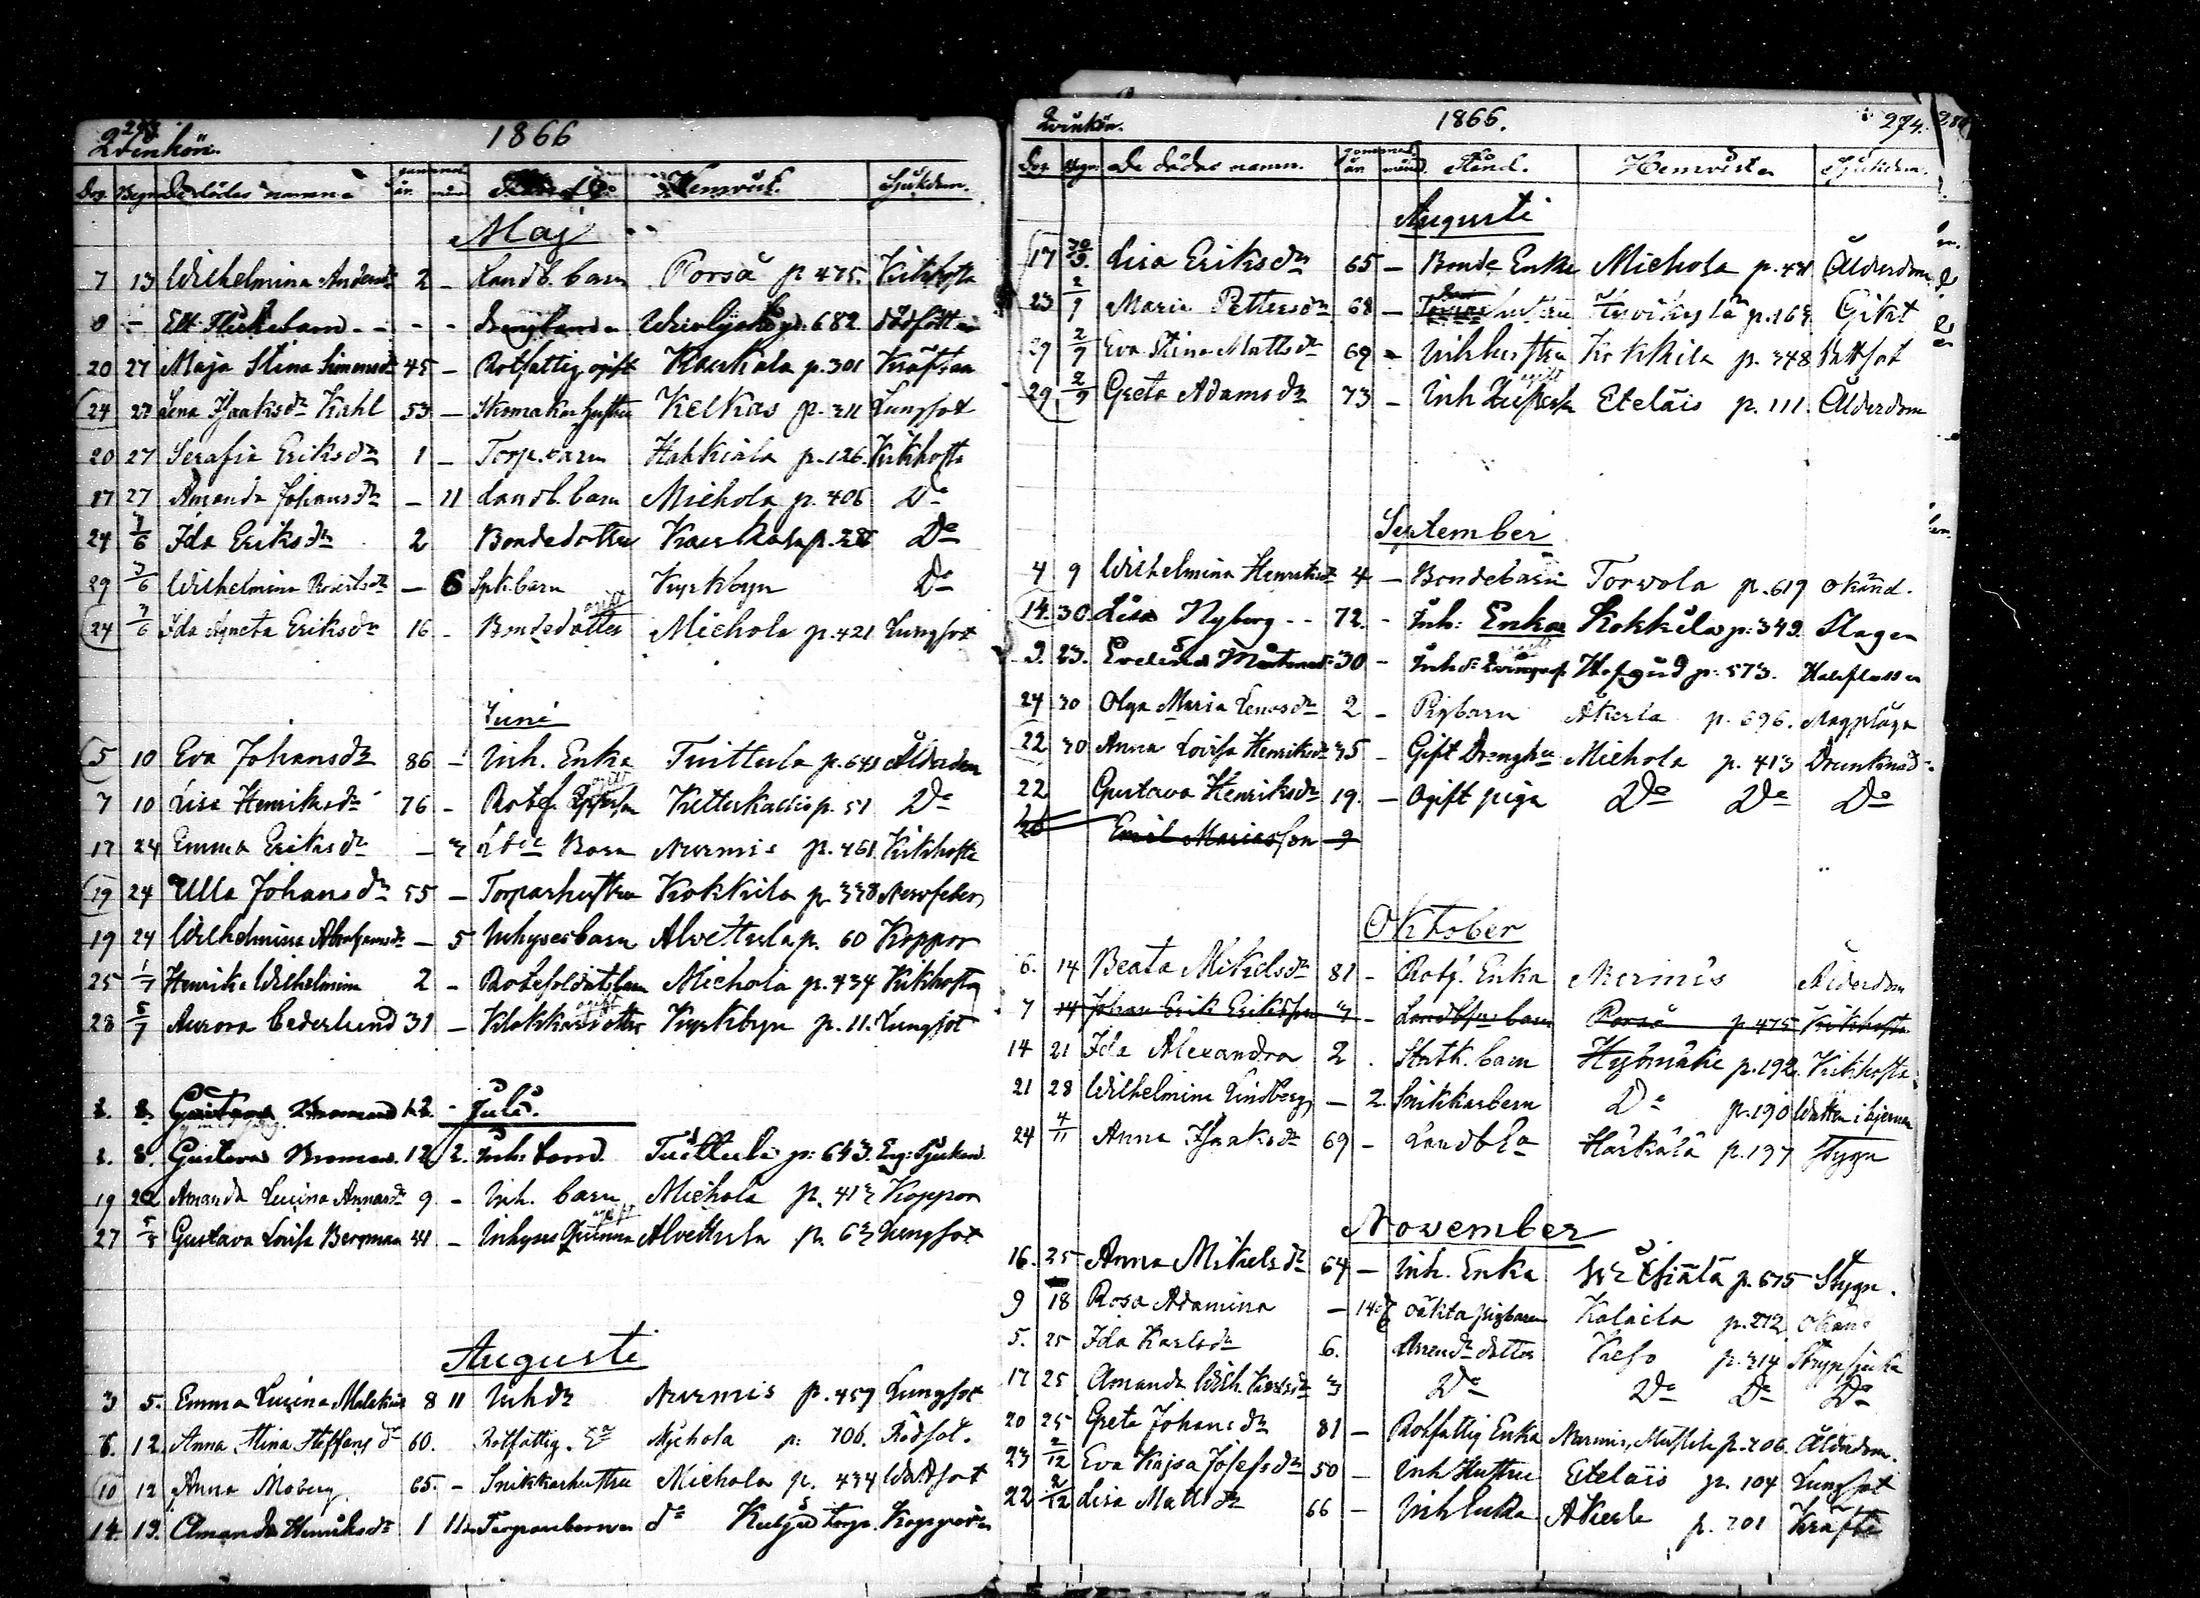 Qvinkön. 1866
Dog. Begr. De dödas namn år mån Hemvist. Sjukdom.
Maj
7 13 Wilhelmina Andersdr 2 - Landb. barn Porsä p. 475. Kikhosta
8 - Ett Flickebarn - - - - p. 682. dödfött
20 27 Maja Stina Simonsdr 45 - Rotfattig ogift Kaukala p. 301 Kräftan
24 27 Lena Isaksdr Kahl 53 - Skomakar hustru Kelkas p. 311 Lungsot
20 27 Serafia Eriksdr 1 - Torp. barn Hakkiala p. 126. Kikhosta
17 27 Amanda Johansdr - 11 Landb. barn Miehola p. 406 Do
24 3/6 Ida Eriksdr 2 Bondedotter Kaukala p. Do
29 3/6 Wilhelmina Robertsdr - 6 Spk. barn Kyrkbyn Do
24 3/6 Ida Agneta Eriksdr 16 - Bondedotter ogift Miehola p. 421 Lungsot
Juni
5 10 Eva Johansdr 86 - Inh. Enka Tuittula p. 641 Ålderdom
7 10 Lisa Henriksdr 76 - Rotef. p. 51 Do
17 24 Emma Eriksdr - 3 Barn Nurmis p. 461 Kikhosta
19 24 Ulla Johansdr 55 - Torparhustru Kokkila p. 338 Nervfeber
19 24 Wilhelmina Abrahamsdr - 5 Inhysesbarn Alvettula p. 60 Koppor
25 1/7 Henrika Wilhelmina 2 - Miehola p. 434 Kikhosta
28 5/7 Aurora Cederlund 31 - Klokkaredotter ogift Kyrkbyn p. 11. Lungsot
1. 8. Gustava 12 - Juli.
1. 8. Gustava 12 2. Inh: Tuittula p: 643. Eng: Sjukan.
19 22 Amanda Lucina Annasdr 9 - Inh. barn Miehola p. 413 Koppor
27 5/8 Gustava Lovisa Bergman 41 - Inhyses Qvinna ogift Alvettula p. 63 Lungsot
Augusti
3 5. Emma Lucina 8 11 Inhdr Nurmis p. 457 Lungsot
6. 12. Anna Stina Steffansdr 60. - Rotfattig. Miehola p: 706. Rödsot.
10 12 Anna Moberg 65. - Snikkarhustru Miehola p. 434 Wattsot
14. 19. Amanda Henriksdr 1 11 Torparebarn do
Qvinkön. 1866. 274.
Dog. Begr. De dödas namn. år månd. Stånd. Hemvisten Sjukdom.
Augusti
17 30/9. Lisa Eriksdr 65 - Bonde Enka Miehola p. 421 Ålderdom
23 2/9 Maria Pettersdr 68 - hustru p. 163 Gikt
29 2/9 Eva Stina Mattsdr 69 - Inh hustru Kokkila p. 348 Wattsot
29 2/9 Greta Adamsdr 73 - Inh ogift Eteläis p. 111. Ålderdom
September
4 9 Wilhelmina Henriksdr 4 - Bondebarn Torvola p. 619 okänd.
14. 30. Lisa Nyberg - - 72. - Inh: Enka Kokkila p: 349. Slagen
9. 23. Evelina 30 - p. 573. Halsflussen
24 30 Olga Maria Lenasdr 2 - Pigbarn Åkerla p. 696. Magplåga
22 30 Anna Lovisa Henriksdr 35 - Gift Miehola p. 413 Drunknad
22 Gustava Henriksdr 19. - Ogift piga Do Do Do
20 Emil Mariasson 9
Oktober
6. 14 Beata Mikelsdr 81 - Rotf. Enka Nurmis Ålderdom
7 14 Johan Erik Eriksson 4 - Landb. barn Porsä p. 475 Kikhosta
14 21 Ida Alexandra 2 . barn p. 192. Kikhosta
21 28 Wilhelmina Lindberg - 2. Snikkarbarn Do p. 190 Watten i hjernan
24 4/11 Anna Isaksdr 69 - p. 197 Stygn
November
16. 25 Anna Mikelsdr 64 - Inh. Enka p. 675 Stygn.
9 18 Rosa Adamina - 14 d oäkta pigbarn Kalaila p. 212. okänd
5. 25 Ida Karlsdr 6. dotter p. 314 Strypsjuka
17 25 Amanda Wilh. Karlsdr 3 Do Do Do Do
20 25 Greta Johansdr 81 - Rotfattig Enka Nurmis, p. 206. Ålderdom.
23 2/12 Eva Kajsa Josefsdr 50 - Inh Hustru Eteläis p. 104 Lungsot
22 2/12 Lisa Mattsdr 66 - Inh Enka Åkerla p. 701 Kräfta